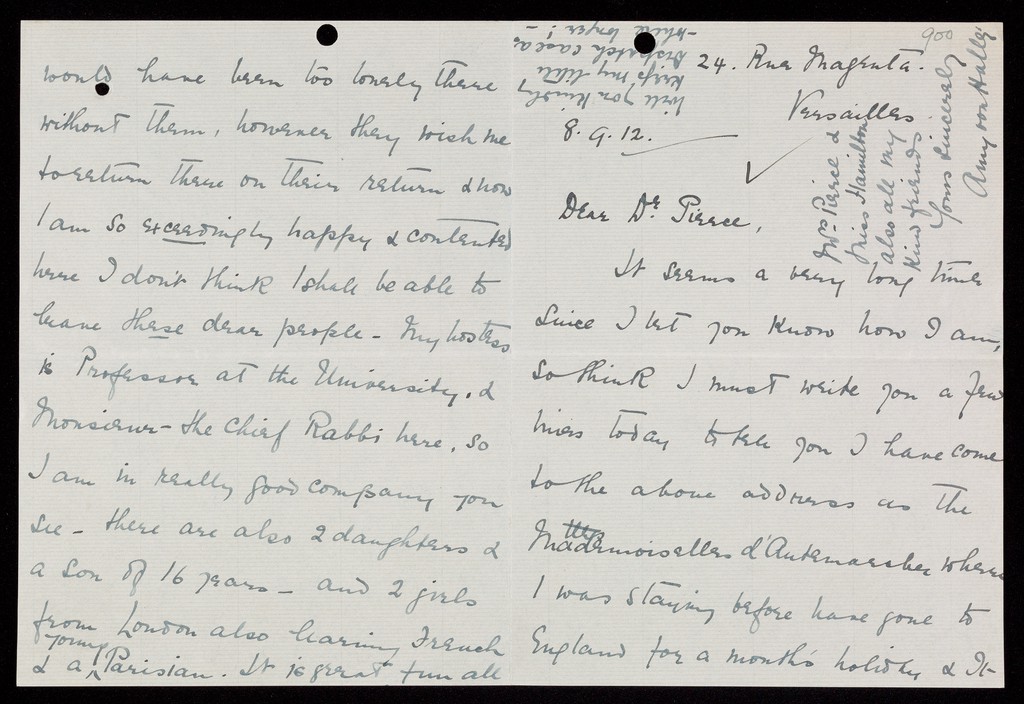 24. Rue Magenta.
Versailles.
8. 9. 12.
Dear Dr Pierce,
It seems a very long time
since I let you know how I am,
so think I must write you a few
lines today to tell you I have come
to the above address as the
Mademoiselles d'Antemarches where
I was staying before have gone to
England for a month's holiday & it
would have been too lonely there
without them, however they wish me
to return there on their return & now
I am so exceedingly happy & contented
here I don't think I shall be able to
leave these dear people - My hostess
is Professor at the University, &
Monsieur - the Chief Rabbi here, so
I am in really good company you
see - there are also 2 daughters &
a son of 16 years - and 2 girls
from London also learning French
& a young Parisian. It is great fun all
Will you kindly
keep my little
despatch case a
while longer! -
Mrs Pierce &
Miss Hamilton
also all my
kind friends.
Yours sincerely
Amy von Halle
900